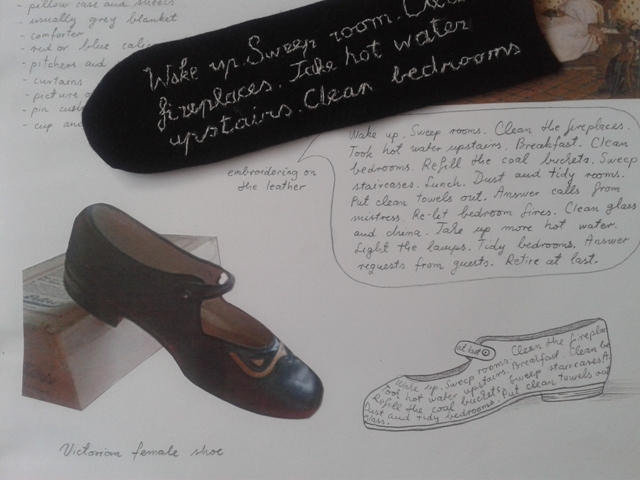 - pillow case and sheets
- usually grey blanket
- comforter
- red or blue
- pitchers and
- curtains
- picture
- pin
- cup and
Wake up. Sweep room.
fireplaces. Take hot water
upstairs. Clean bedrooms
embroidering on
the leather
Wake up. Sweep rooms. Clean the fireplaces.
Took hot water upstairs. Breakfast. Clean
bedrooms. Refill the coal buckets. Sweep
staircases. Lunch. Dust and tidy rooms.
Put clean towels out. Answer calls from
mistress. Re-let bedroom fires. Clean glass
and china. Take up more hot water.
Light the lamps. Tidy bedrooms. Answer
requests from guests. Retire at last.
Victorian female shoe
at last
Clean the fireplac
Wake up. Sweep rooms.
Took hot water upstairs. Breakfast. Clean be
Refill the coal buckets. Sweep staircases.
Dust and tidy bedrooms. Put clean towels out